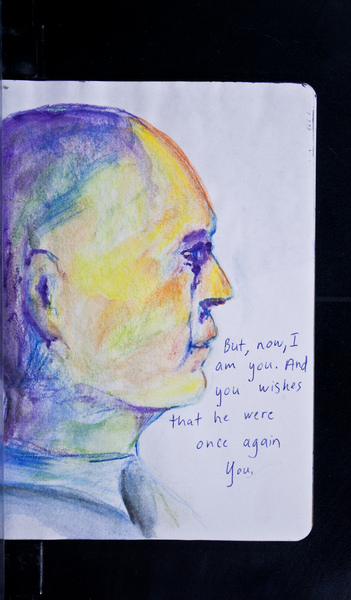 But, now, I
am you. And
you wishes
that he were
once again
You.